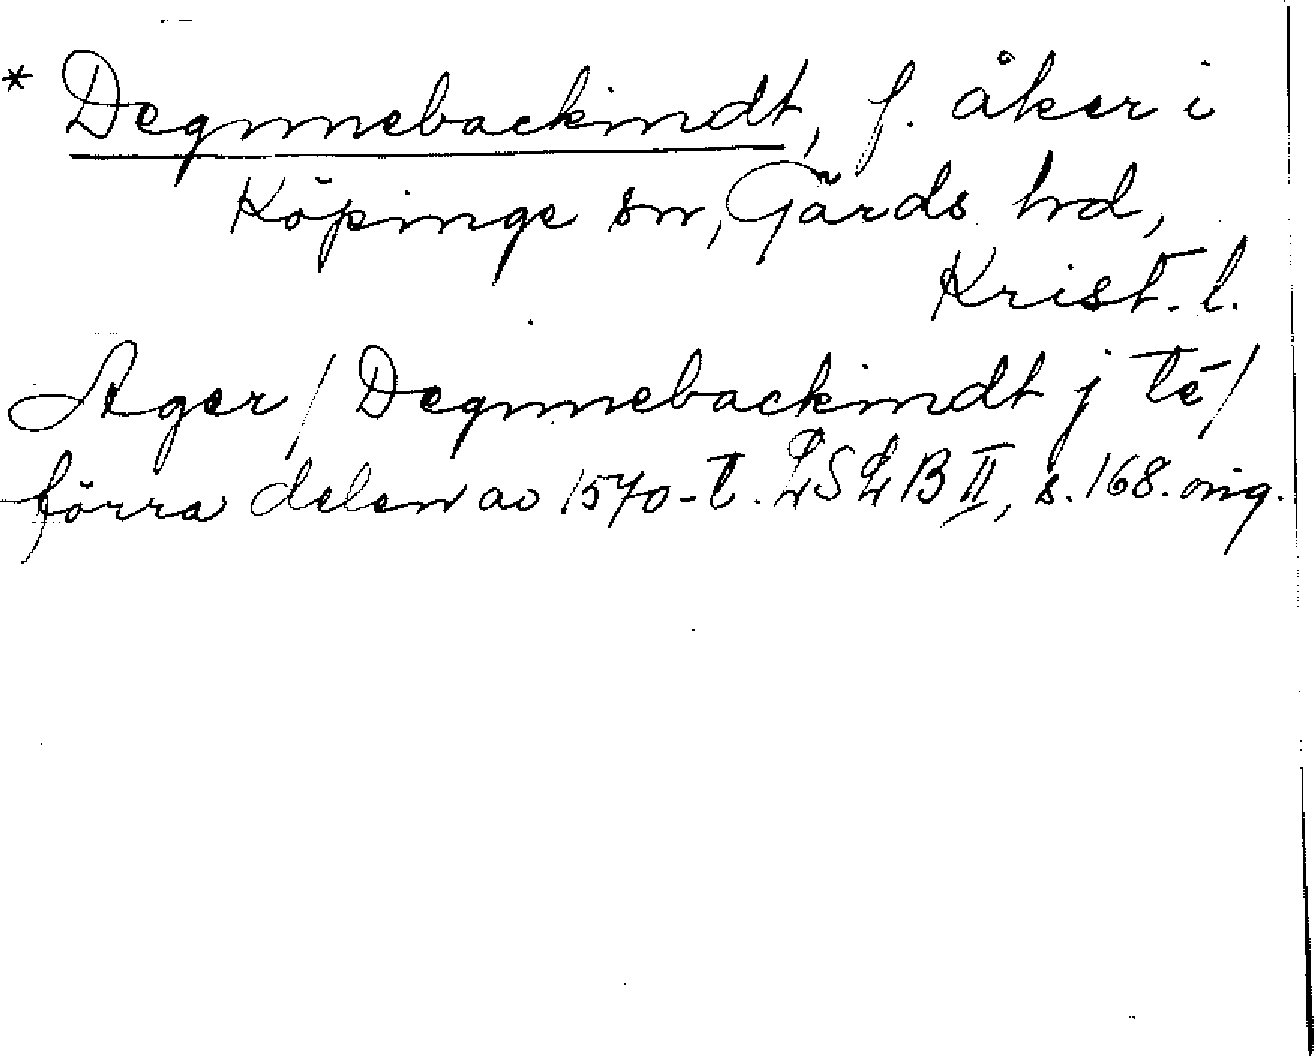 * Degnnebackindt, f. åker i
Köpinge sn, Gärds hd,
Krist. l.
Ager / Degnnebackindt j té /
förra delen av 1570-t. LSLB II, s. 168. orig.